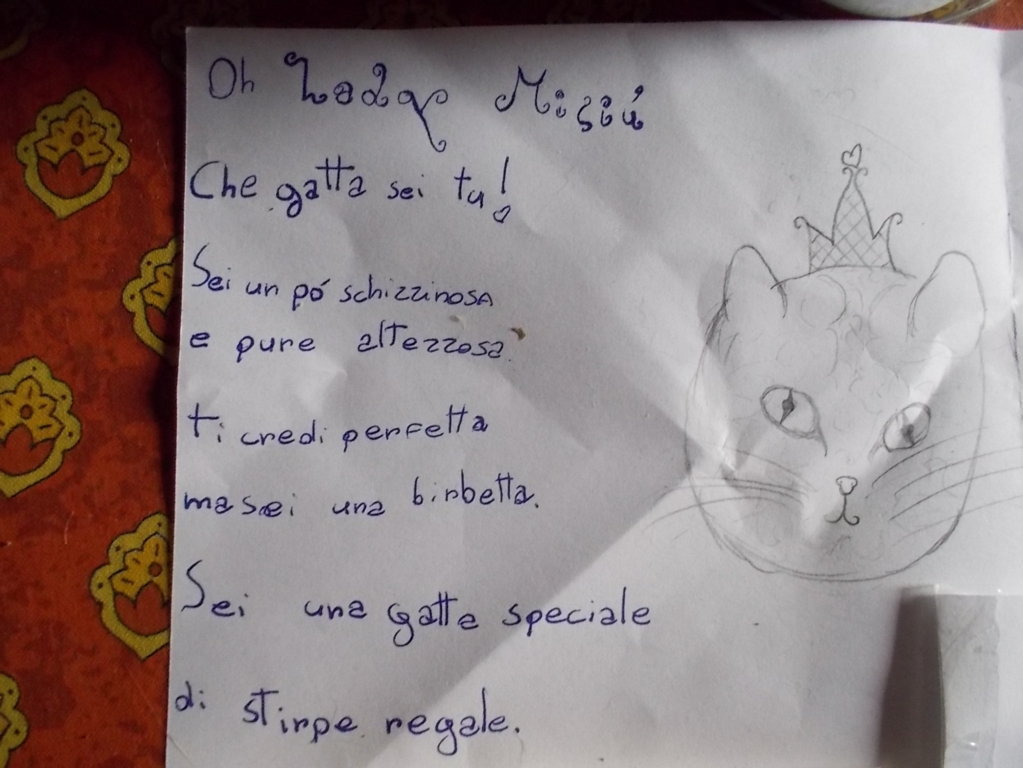 Oh Lady Misiú
Che gatta sei tu!
Sei un pó schizzinosa
e pure altezzosa
ti credi perfetta
ma sei una birbetta.
Sei una gatta speciale
di stirpe regale.